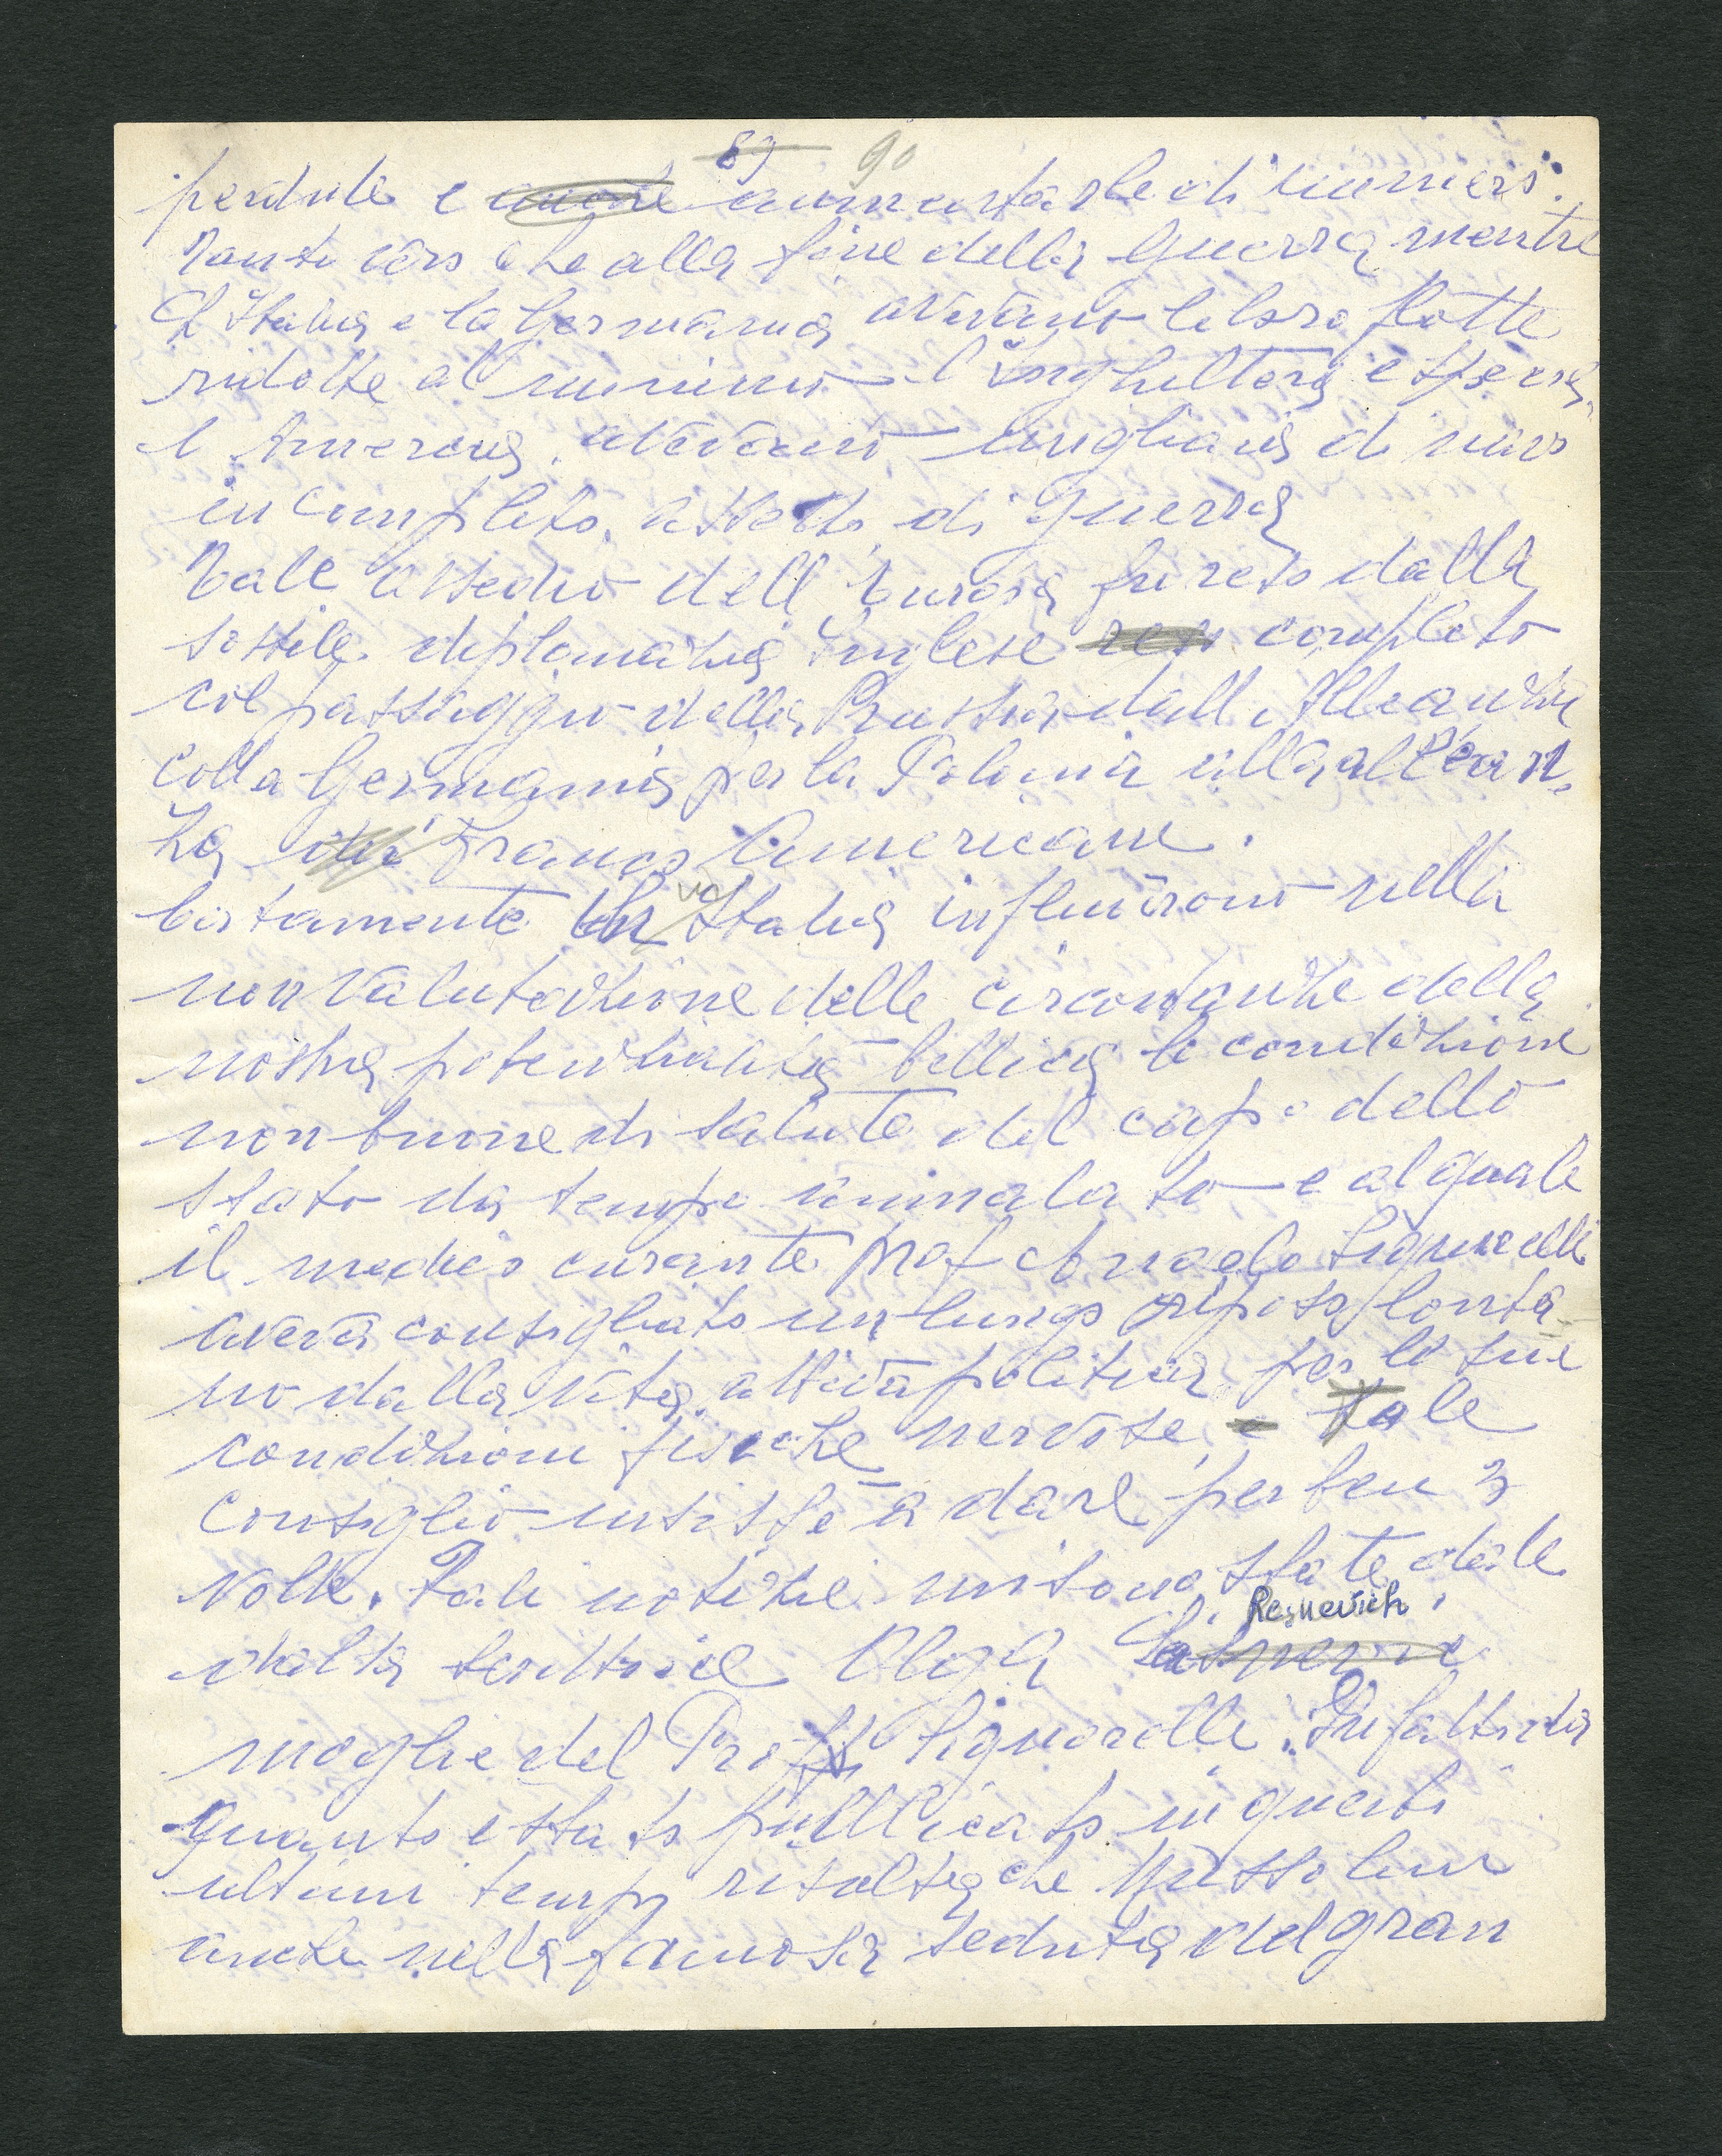 89 90
perdute e anche aumentarle di numero.
Tanto vero che alla fine della guerra mentre
l'Italia e la Germania avevano le loro flotte
ridotte al minimo l'Inghilterra e specie
l'America avevano migliaia di navi
in completo assetto di guerra
Tale assedio dell'Europa fu reso dalla
sottile diplomazia Inglese reso completo
col passaggio della Russia dall'Alleanza
colla Germania per la Polonia alla allean-
za dei Franco Americani.
Certamente in Italia influirono nella
non valutazione delle circostanze della
nostra potenzialità bellica le condizioni
non buone di salute del capo dello
stato da tempo ammalato e al quale
il medico curante prof Angelo Signorelli
aveva consigliato un lungo riposo lonta-
no dalla vita attiva politica per le sue
condizioni fisiche nervose, e tale
consiglio insistè a dare per ben 3
volte. Tali notizie mi sono state date
Resnevich
dalla scrittrice Olga
moglie del Prof Signorelli. Infatti da
quanto è stato pubblicato in questi
ultimi tempi risulta che Mussolini
anche nella famosa seduta del gran